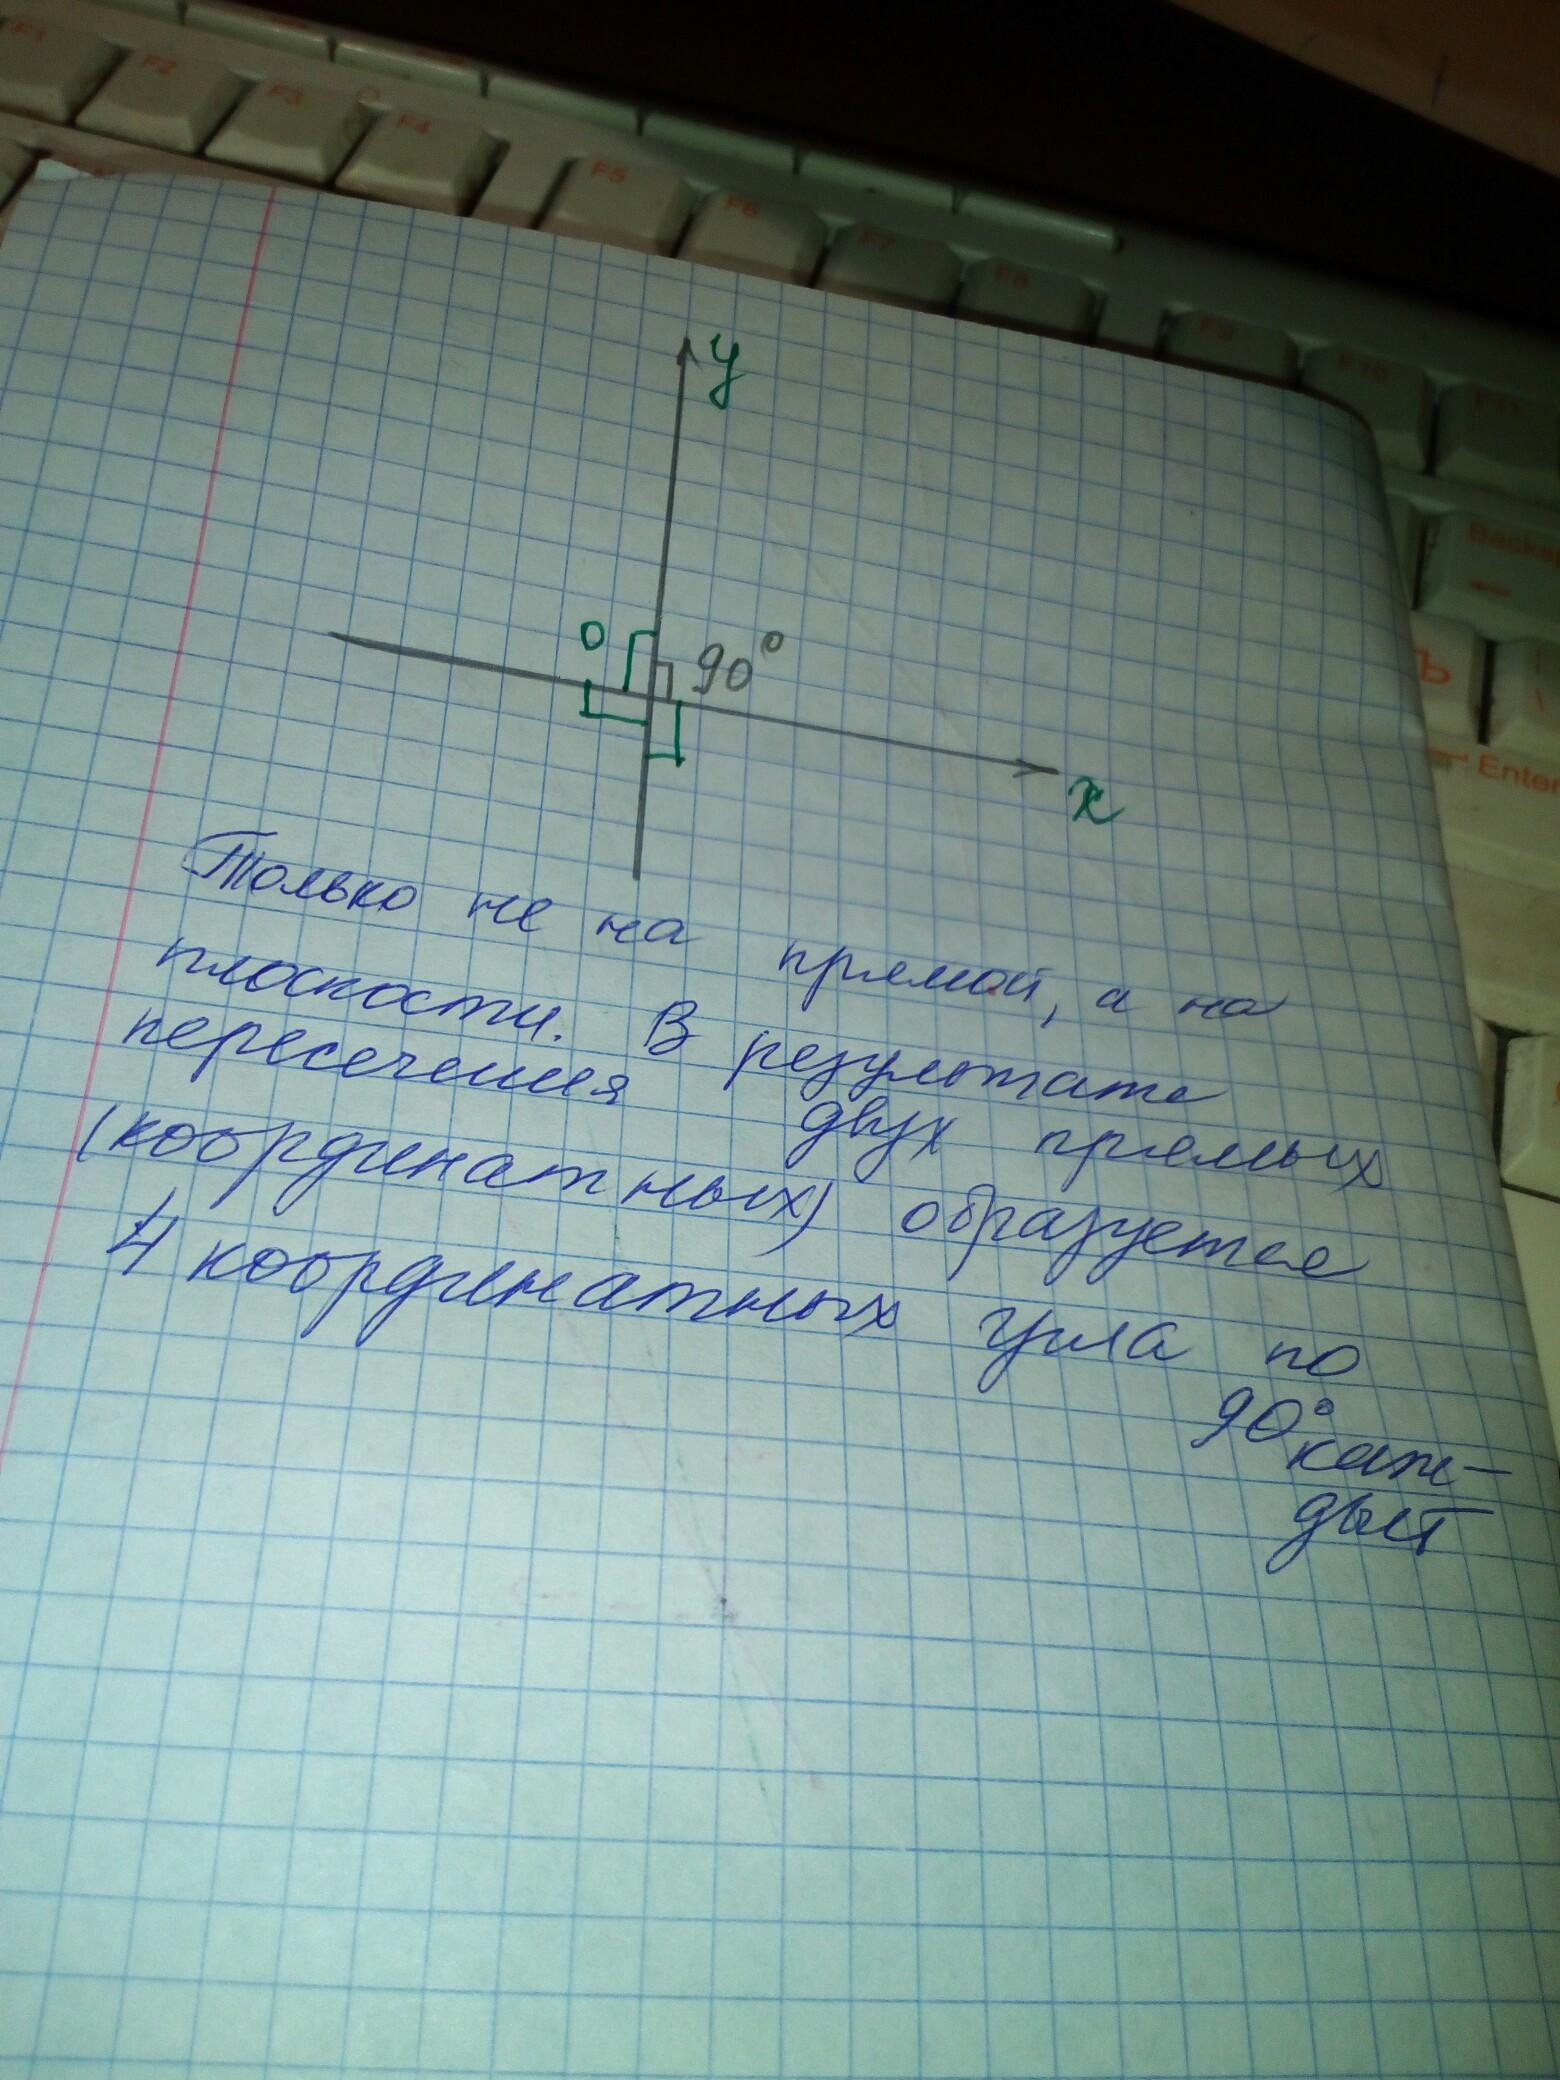 F1
F2
F3
F4
F5
F6
F7
F8
F9
F10
F11
Backsp
←
Ъ
Enter
y
0
90°
x
Только не на прямой, а на
плоскости. В результате
пересечения двух прямых
(координатных) образуется
4 координатных угла по
90° каж-
дый